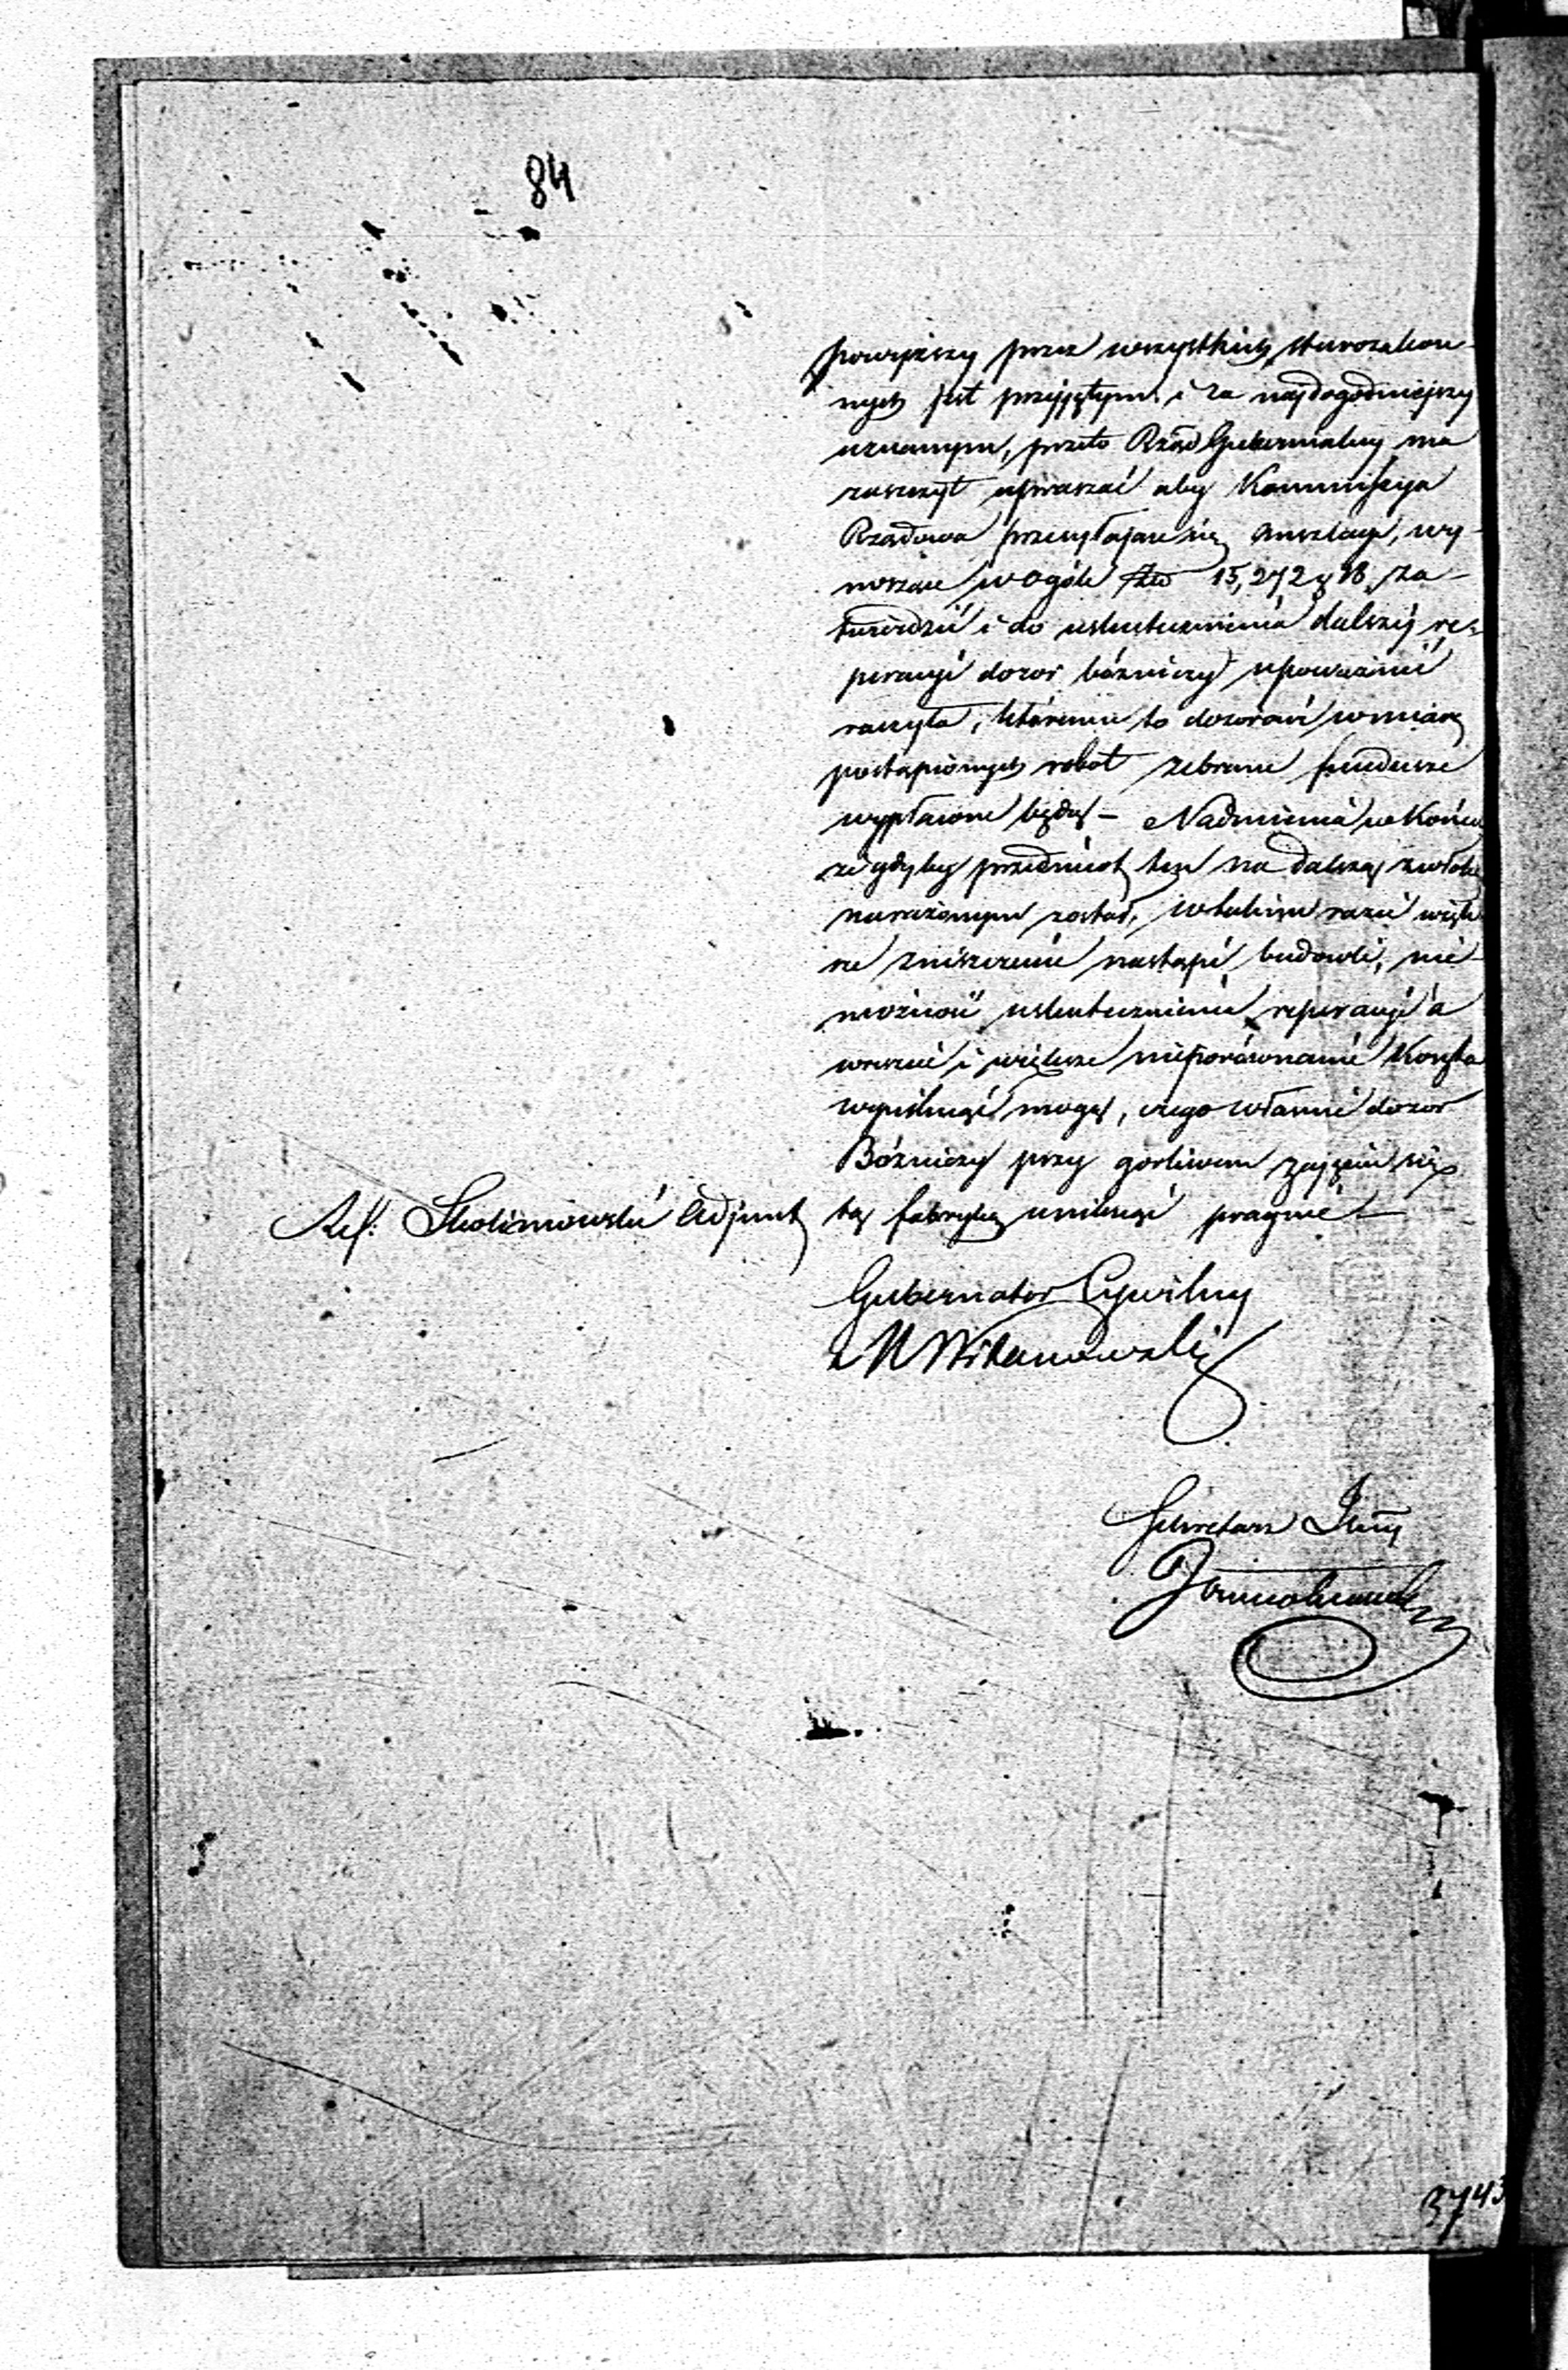 84
powyższy przez wszystkich starozakon-
nych jest przyjętym i za najdogodniejszy
uznanym, przeto Rząd Gubernialny ma
zaszczyt upraszać aby Kommissyja
Rządowa przesyłające się anszlagi, wy-
noszące w ogóle 15,272 g 18, za-
twierdzić i do uskutecznienia dalszej re-
peracyi dozor bóżniczy upoważnić
raczyła, któremu to dozorowi w miarę
postąpionych robot zebrane fundusze
wypłacone będą — Nadmienia w końcu
że gdyby przedmiot ten na dalszą zwłokę
narażonym został, w takim razie więk-
sze zniszczenie nastąpi budowli, nie-
możność uskutecznienia reperacyi a
wreszcie i większe nieporównanie Koszta
wyniknąć mogą, czego właśnie dozor
Bóżniczy przy gorliwem zajęciu się
tą fabryką uniknąć pragnie —
Ref. Skolimowski Adjunkt
Gubernator Cywilny
Sekretarz Jlny
3743